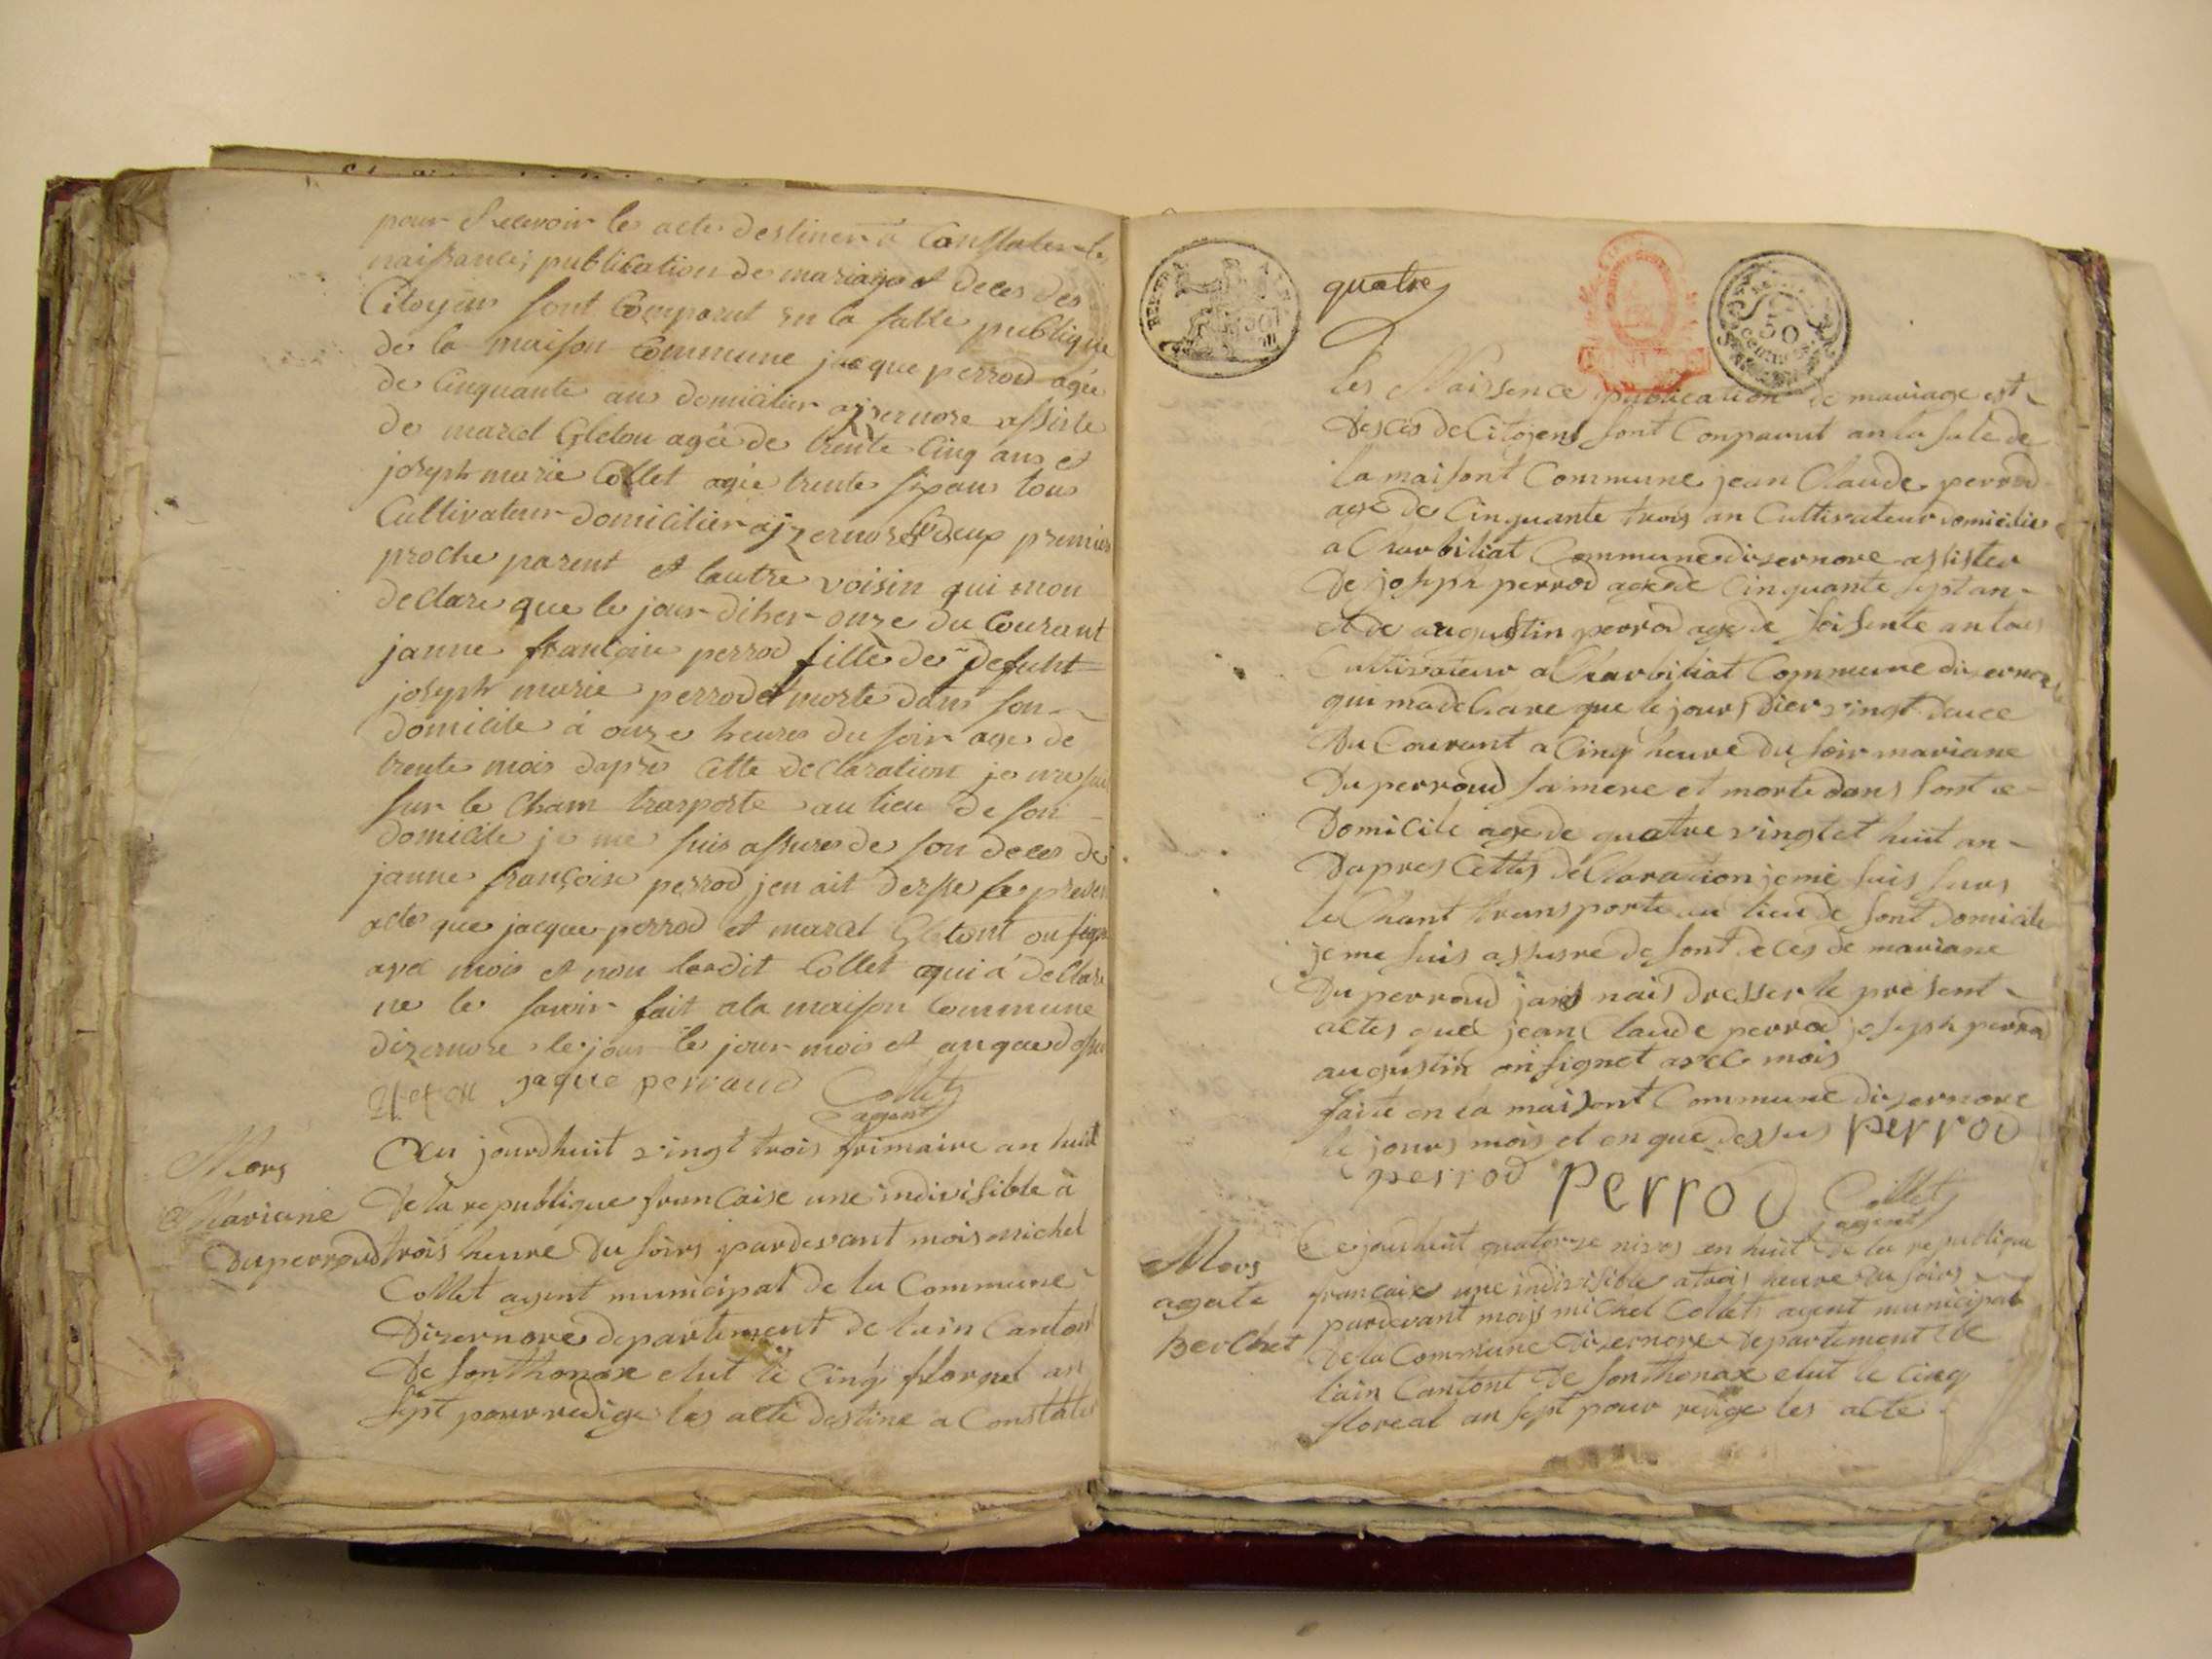 pour Recevoir les actes destiner à Constater les
naissances, publication de mariage et deces des
Citoyens sont Comparut en la salle publique
de la maison Commune jacque perrod agée
de Cinquante ans domicilier ajzernore assiste
de marcel Gletou agée de trente Cinq ans et
joseph marie Collet agée trente six ans tous
Cultivateur domicilier ajzernore deux premier
proche parent et lautre voisin qui mon
declare que le jour diher onze du Courant
janne francoise perrod fille de defunt
joseph marie perrod et morte dans son
domicile à onze heures du soir age de
trente mois daprès cette declaration je me suis
sur le Cham trasporte au lieu de son
domicile je me suis assures de son deces de
janne françoise perrod jen ait dersse le present
actes que jacque perrod et marcel Gletont on signe
avec mois et non ledit Collet qui à declare
ne le savoir fait ala maison Commune
dizernore le jour le jour mois et an que dessu
jaque perraud Collet
agent
Mors
Mariane
Duperroud
Au jourdhuit vingt trois frimaire an huit
De la republique francaise une indivisible à
trois heure Du soirs pardevant mois michel
Collet agent municipal de la Commune
Dizernore departement de lain Canton
De sonthonax elut le Cinq floreal an
sept pour redige les acte destine a Constater
quatre
50
centimes
les Naissence publication de mariage est
Desces de Citojens sont Conparut an la sale de
la maisont Commune jean Claude perrod
age de Cinquante trois an Cultivateur domicilie
a Charbiliat Commune dizernore assister
De joseph perrod age de Cinquante sept an
et de augustin perrod age de soisente an tous
Cultivateur a Charbiliat Commune dizernore
qui ma declare que le jours dier vingt deuce
Du Courant a Cinq heure du soir mariane
Duperroud sa mere et morte dans sont
Domicile age de quatre vingt et huit an
Dapres Cettes déClaration je me suis surs
le Chant transporte au lieu de sont domicile
je me suis assusre de sont deces de mariane
Duperroud jans nais dresser le présent
actes que jean Claude perrod joseph perrod
augustin on signet avec mois
faite en la maisont Commune dizernore
le jours mois et en que dessus perrod
perrod perrod Collet
agent
Mors
agate
Berchet
Ce jourdhuit quatorze nivos an huit de la republique
francaise une indivisible a trois heure du soirs
pardevant mois michel Collet agent municipal
de la Commune Dizernore departement de
lain Cantont de sonthonax elut le cinq
floreal an sept pour redige les acte